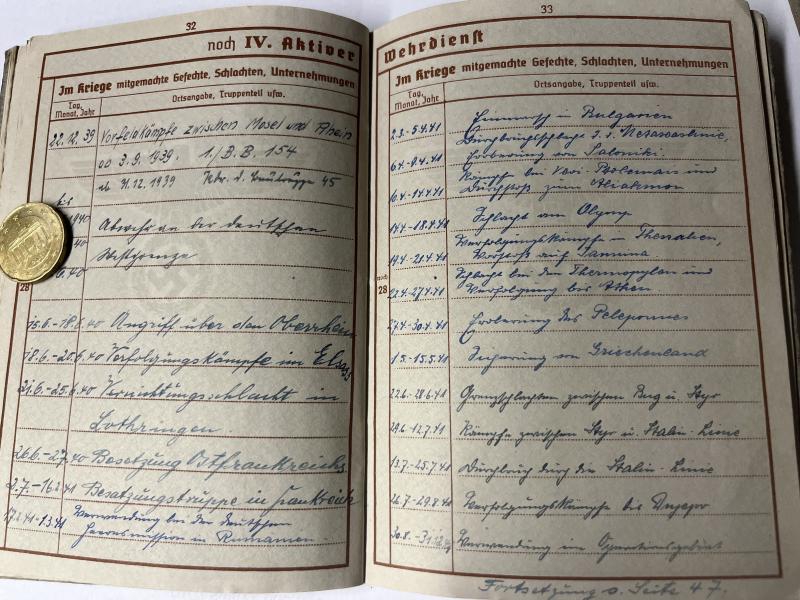 32
noch IV. Aktiver
Im Kriege mitgemachte Gefechte, Schlachten, Unternehmungen
Tag, Monat, Jahr
Ortsangabe, Truppenteil usw.
22.12.39 Vorfeldkämpfe zwischen Mosel und Rhein
3.9.1939. 1./B.B. 154
31.12.1939 45
bis
1940 Abwehr an der deutschen
40 Westgrenze
6.40
28
15.6.-18.6.40 Angriff über den Oberrhein
18.6.-20.6.40 Verfolgungskämpfe im Elsass
21.6.-25.6.40 Vernichtungsschlacht in
Lothringen
26.6.-2.7.40 Besetzung Ostfrankreichs
2.7.-16.2.41 Besatzungstruppe in Frankreich
17.2.41-1.3.41 Verwendung bei der deutschen
Heeresmission in Rumänien.
33
Wehrdienst
Im Kriege mitgemachte Gefechte, Schlachten, Unternehmungen
Tag, Monat, Jahr
Ortsangabe, Truppenteil usw.
2.3.-5.4.41 Einmarsch in Bulgarien
Durchbruchschlacht
6.4.-9.4.41 Eroberung von Saloniki
Kämpfe bei
10.4.-14.4.41 Durchstoß zum Aliakmon
14.4.-18.4.41 Schlacht am Olymp
Verfolgungskämpfe in Thessalien,
19.4.-21.4.41 Vorstoß auf
Schlacht bei den Thermopylen und
22.4.-27.4.41 Verfolgung bis Athen
noch
28
27.4.-30.4.41 Eroberung des Peloponnes
1.5.-15.5.41 Sicherung von Griechenland
22.6.-28.6.41 Grenzschlachten zwischen Bug u. Styr
29.6.-12.7.41 Kämpfe zwischen Styr u. Stalin-Linie
13.7.-25.7.41 Durchbruch durch die Stalin-Linie
26.7.-29.8.41 Verfolgungskämpfe bis Dnjepr
30.8.-31.12. Verwendung im Operationsgebiet
Fortsetzung s. Seite 47.